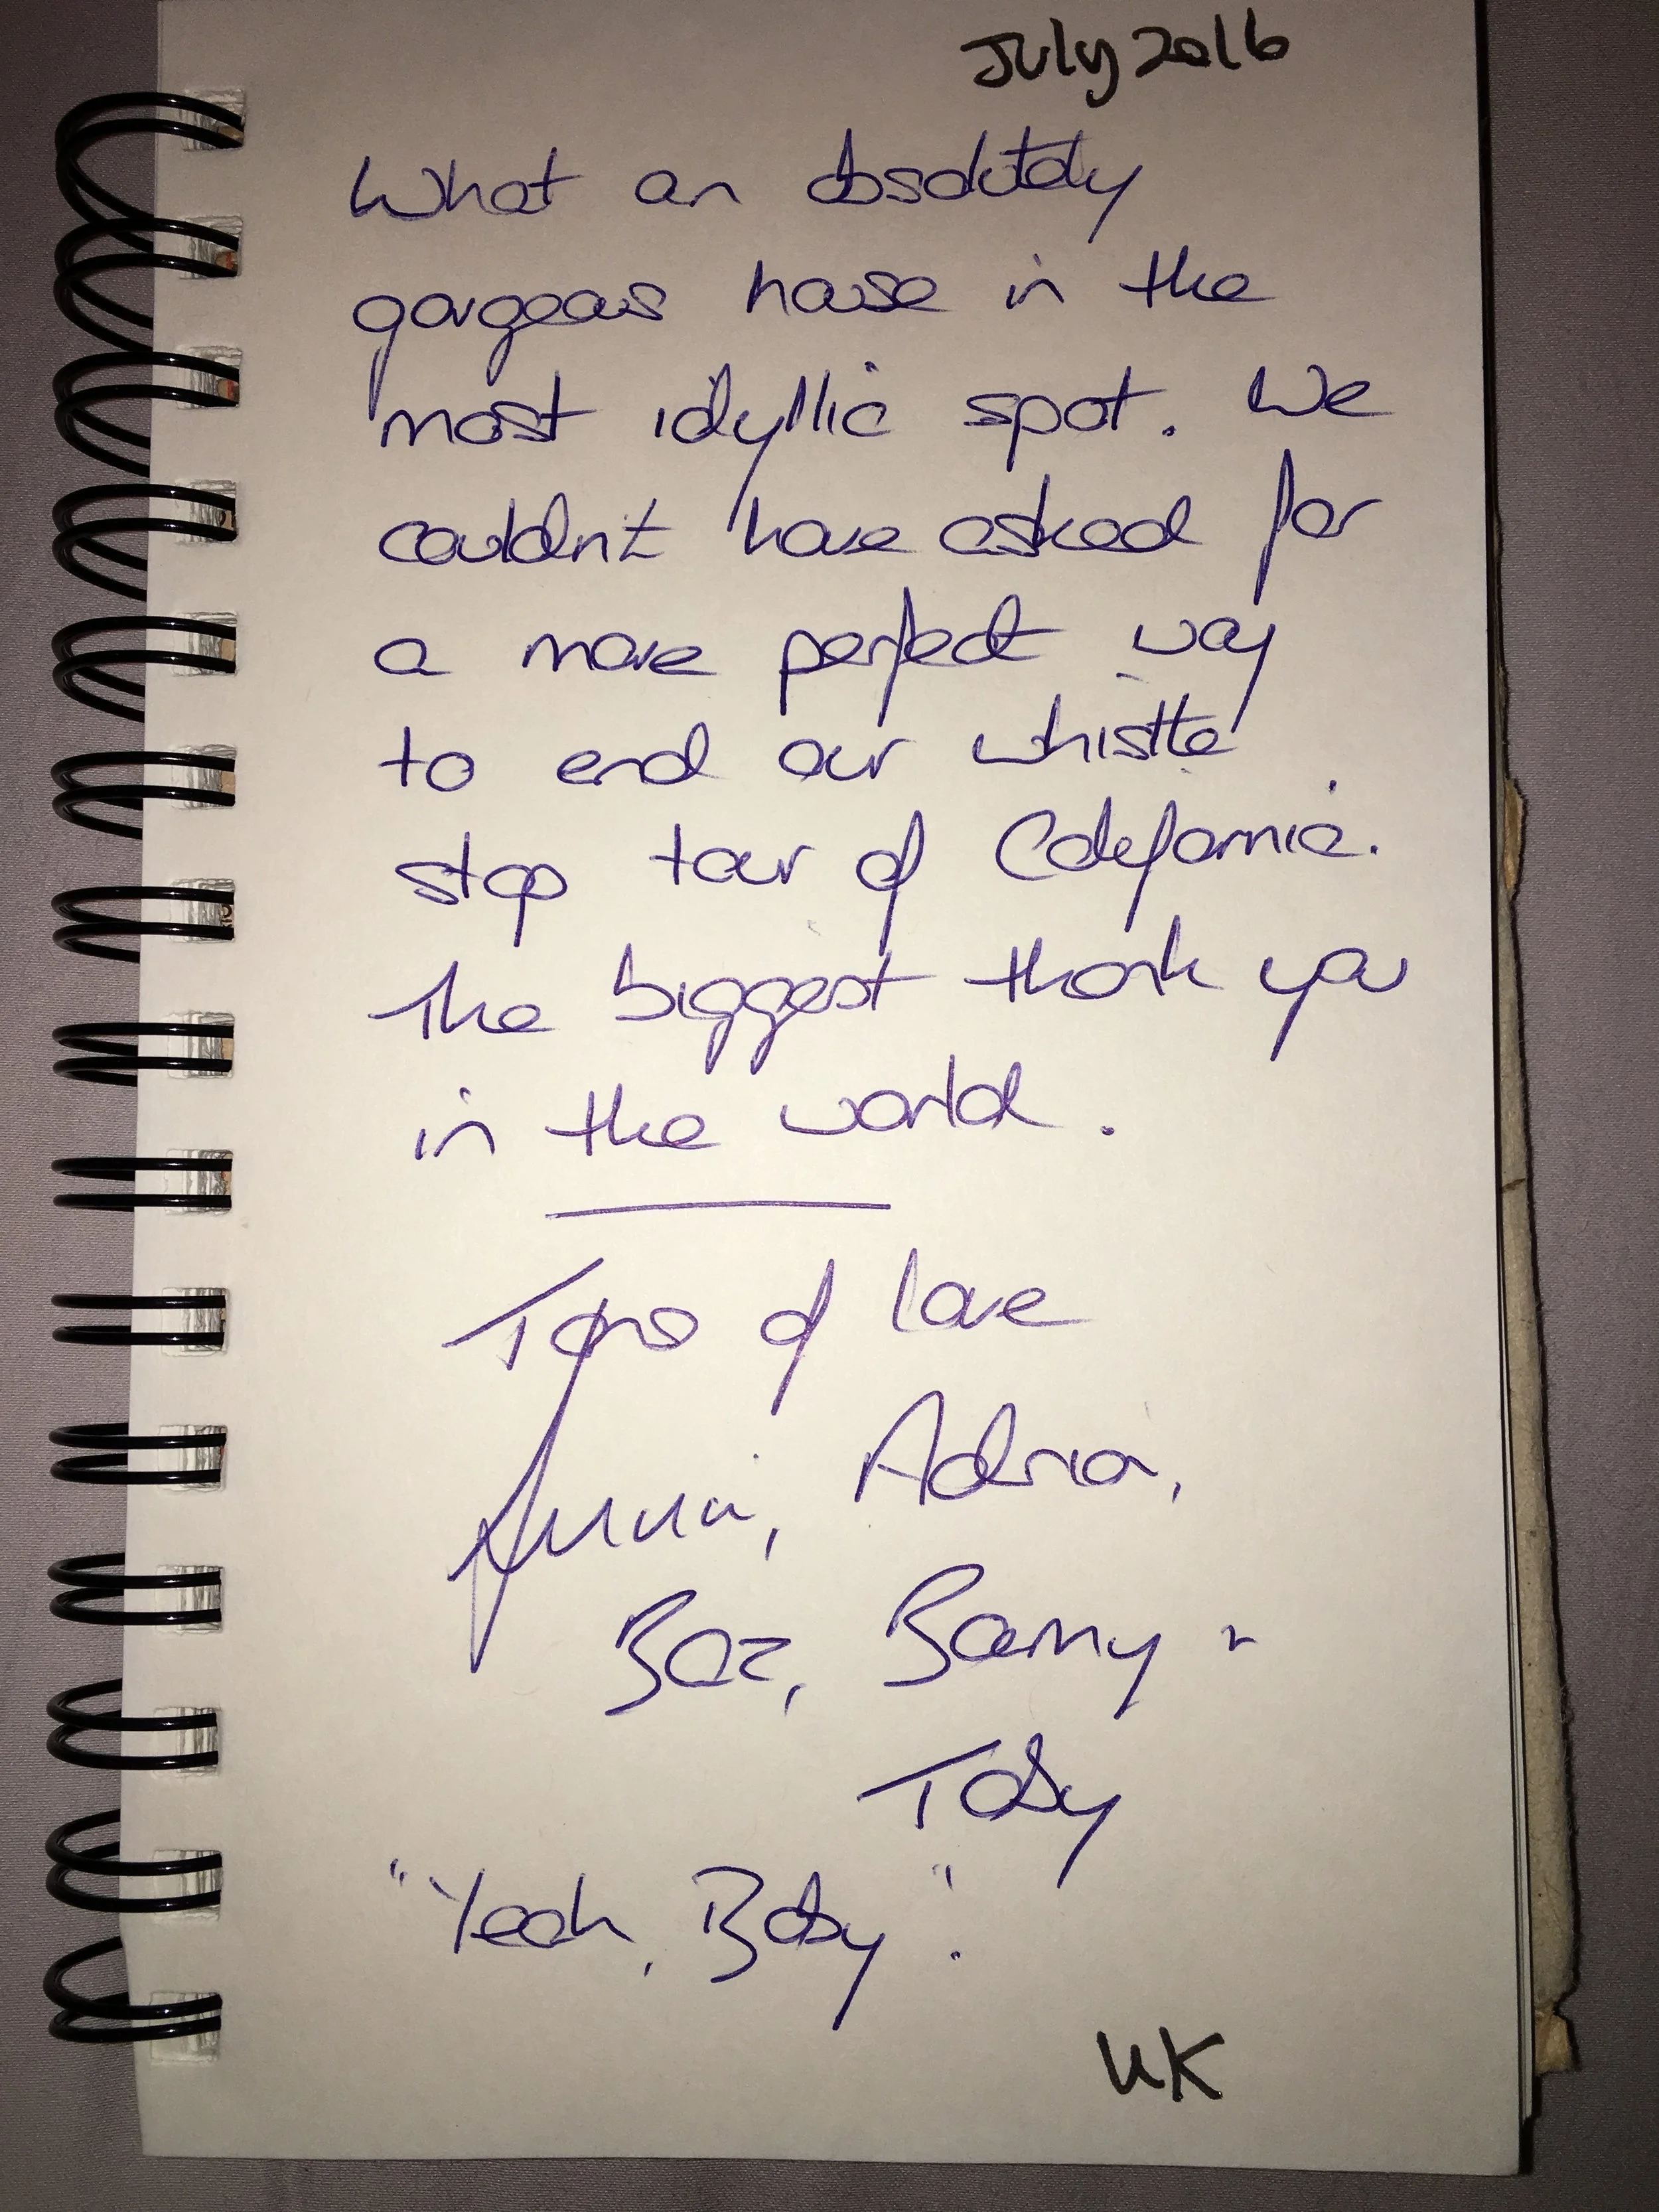 July 2016
What an absolutely
gorgeous house in the
most idyllic spot. We
couldn't have asked for
a more perfect way
to end our whistle
stop tour of California.
The biggest thank you
in the world.
Tons of love
Adria,
Baz, Barny +
Toby
"Yeah, Baby".
UK